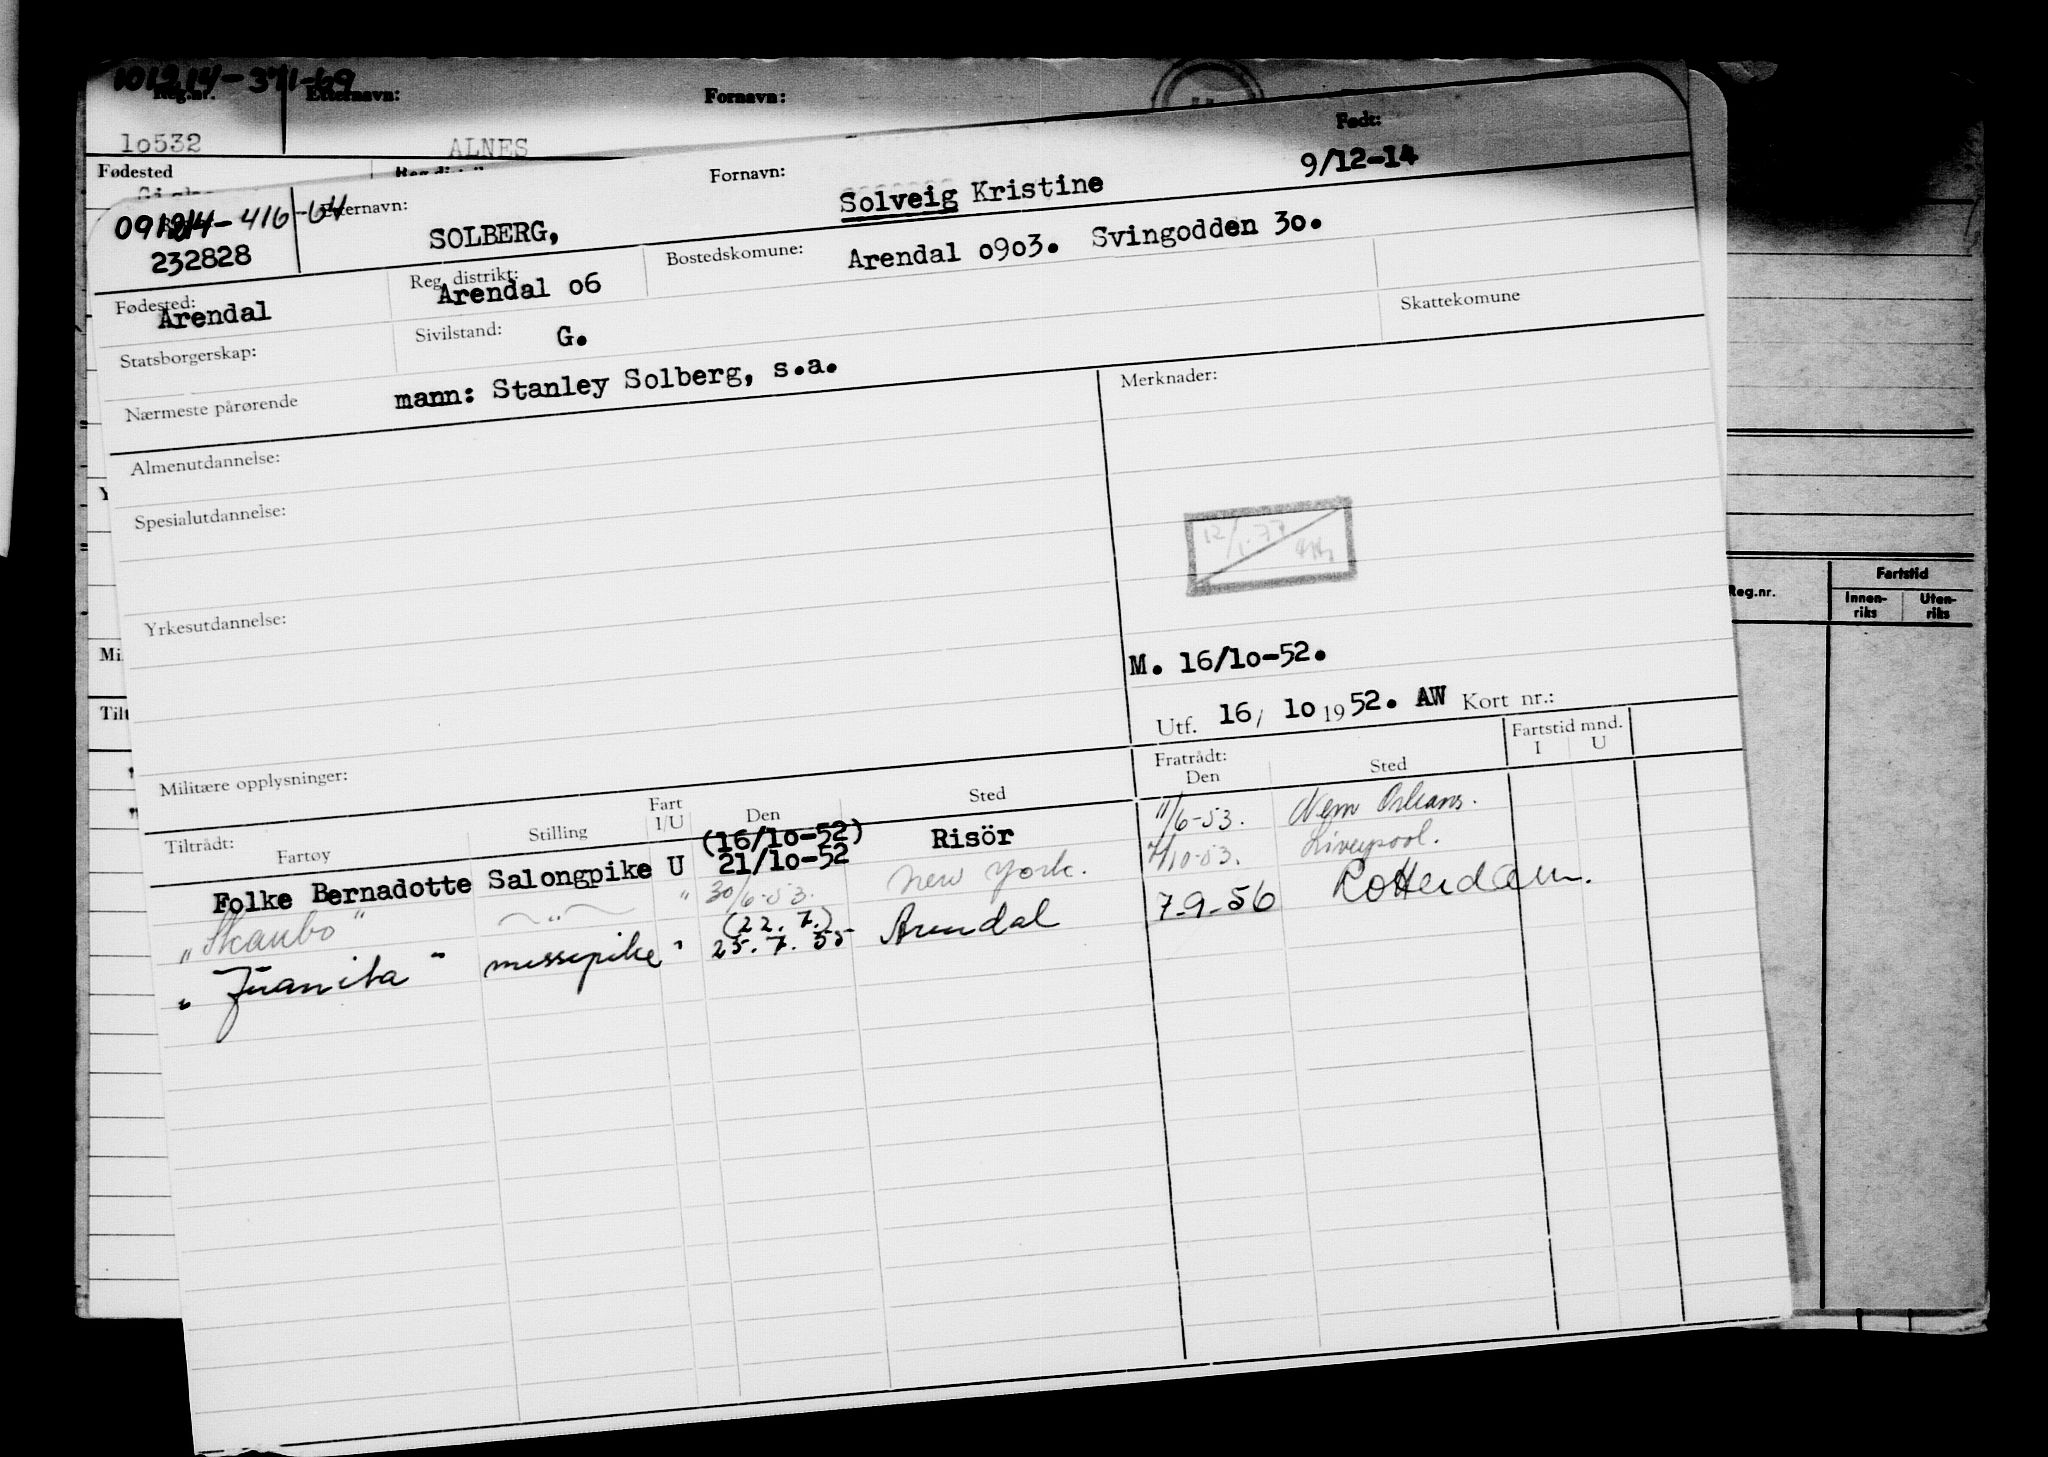 101214-371-69
Reg.nr. Etternavn: Fornavn:
10532 ALNES
Fødested
091214-416-64 Etternavn: Fornavn: Født:
232828 SOLBERG, Solveig Kristine 9/12-14
Fødested: Reg. distrikt: Bostedskomune:
Arendal Arendal o6 Arendal o9o3. Svingodden 3o.
Statsborgerskap: Sivilstand: G. Skattekomune
Nærmeste pårørende mann: Stanley Solberg, s.a.
Almenutdannelse: Merknader:
Spesialutdannelse:
12/1.77
Yrkesutdannelse:
M. 16/1o-52.
Utf. 16/ 1o 1952. AW Kort nr.:
Militære opplysninger:
Tiltrådt: Fartøy Stilling Fart I/U Den Sted Fratrådt: Den Sted Fartstid mnd. I U
(16/1o-52)
Folke Bernadotte Salongpike U 21/1o-52 Risör 11/6-53. New Orleans.
"Skaubo" " " 30/6-53. New York. 7/10-53. Liverpool.
(22.7.)
"Juanita" messepike " 25.7.55 Arendal 7-9-56 Rotterdam.
Reg.nr. Fartstid
Innen-riks Uten-riks